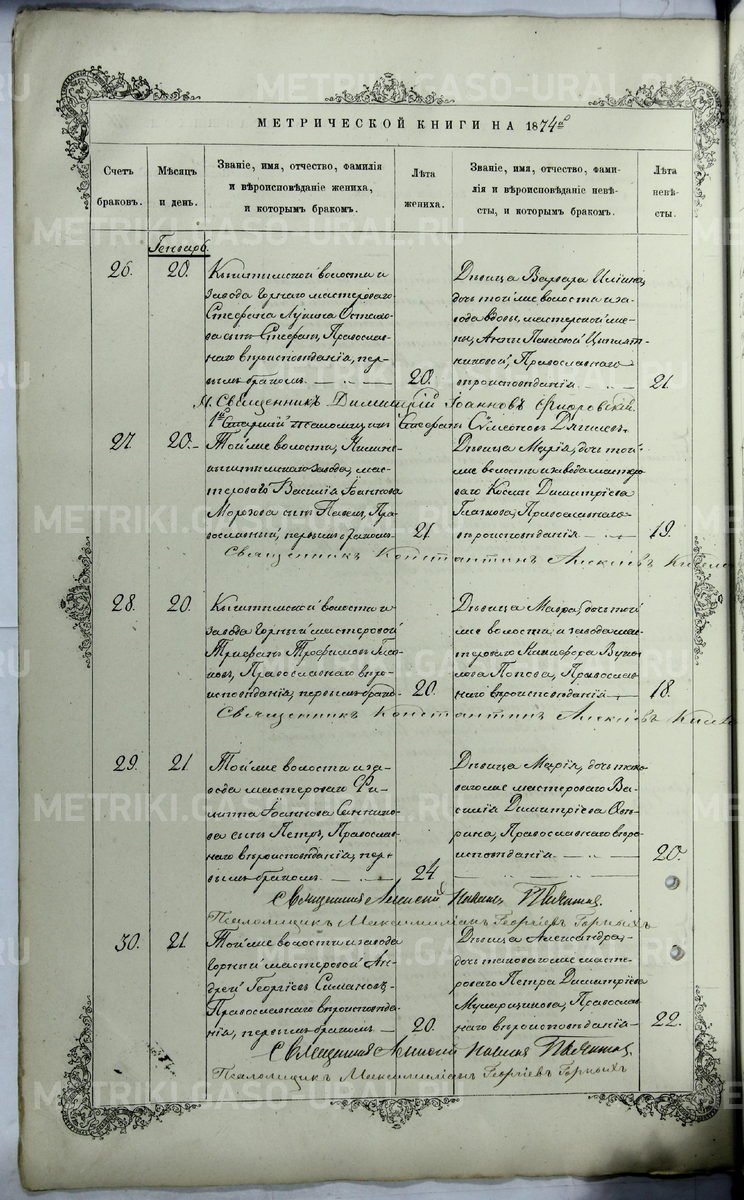 МЕТРИЧЕСКОЙ КНИГИ НА 1874й
Счетъ браковъ.
Мѣсяцъ и день.
Званіе, имя, отчество, фамилія
и вѣроисповѣданіе жениха,
и которымъ бракомъ.
Лѣта
жениха.
Званіе, имя, отчество, фами-
лія и вѣроисповѣданіе невѣ-
сты, и которымъ бракомъ.
Лѣта
невѣ-
сты.
Генварь.
26. 20.
Кыштымской волости и
завода горнаго мастероваго
Стефана Лукина
сынъ Стефанъ, Православ-
наго вѣроисповѣданія, пер-
вымъ бракомъ. 20.
Дѣвица Варвара
дочь той же волости и за-
вода вдовы, мастерской же-
ны, Анны Павловой
Православнаго
вѣроисповѣданія 21.
Священникъ Димитрій Іоанновъ
Старшій Псаломщикъ Стефанъ Сѵмеоновъ
27 20.
Той же волости, Нижне-
кыштымскаго завода, мас-
тероваго Василія Іоаннова
Морозова сынъ Павелъ, Пра-
вославный, первымъ бракомъ 21.
Дѣвица Марія, дочь той
же волости и завода мастеро-
ваго Космы Димитріева
Глазкова, Православнаго
вѣроисповѣданія 19.
Священникъ Константинъ Алексіевъ
28. 20.
Кыштымской волости и
завода горный мастеровой
Трифанъ Трофимовъ
Православнаго вѣро-
исповѣданія, первымъ бракомъ 20.
Дѣвица Мавра, дочь той
же волости и завода мас-
тероваго Никифора Вуко-
лова Попова, Православ-
наго вѣроисповѣданія 18.
Священникъ Константинъ Алексіевъ
29. 21.
Той же волости и за-
вода мастероваго Фи-
липпа Іоаннова
сынъ Петръ, Православ-
наго вѣроисповѣданія, пер-
вымъ бракомъ 24.
Дѣвица Марія, дочь тако-
ваго же мастероваго Ва-
силія Димитріева
Православнаго вѣро-
исповѣданія 20.
Священникъ Алексій
Псаломщикъ Максимиліанъ Георгіевъ Горныхъ
30. 21.
Той же волости и завода
горный мастеровой Ан-
дрей Георгіевъ Симановъ,
Православнаго вѣроисповѣда-
нія, первымъ бракомъ 20.
Дѣвица Александра,
дочь таковаго же масте-
роваго Петра Димитріева
Православ-
наго вѣроисповѣданія 22.
Священникъ Алексій
Псаломщикъ Максимиліанъ Георгіевъ Горныхъ
METRIKI.GASO-URAL.RU